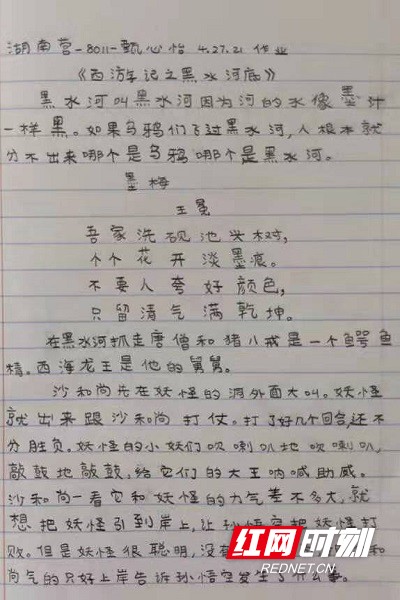 湖南营-8011-甄心怡 4.27.21 作业
《西游记之黑水河底》
黑水河叫黑水河因为河的水像墨汁
一样黑。如果乌鸦们飞过黑水河,人根本就
分不出来哪个是乌鸦哪个是黑水河。
墨梅
王冕
吾家洗砚池头树,
个个花开淡墨痕。
不要人夸好颜色,
只留清气满乾坤。
在黑水河抓走唐僧和猪八戒是一个鳄鱼
精。西海龙王是他的舅舅。
沙和尚先在妖怪的洞外面大叫。妖怪
就出来跟沙和尚打仗。打了好几个回合,还不
分胜负。妖怪的小妖们吹喇叭地吹喇叭,
敲鼓地敲鼓,给它们的大王呐喊助威。
沙和尚一看它和妖怪的力气差不多大,就
想把妖怪引到岸上,让孙悟空把妖怪打
败。但是妖怪很聪明,没有
尚气的只好上岸告诉孙悟空发生了什么事。
红网时刻
REDNET.CN